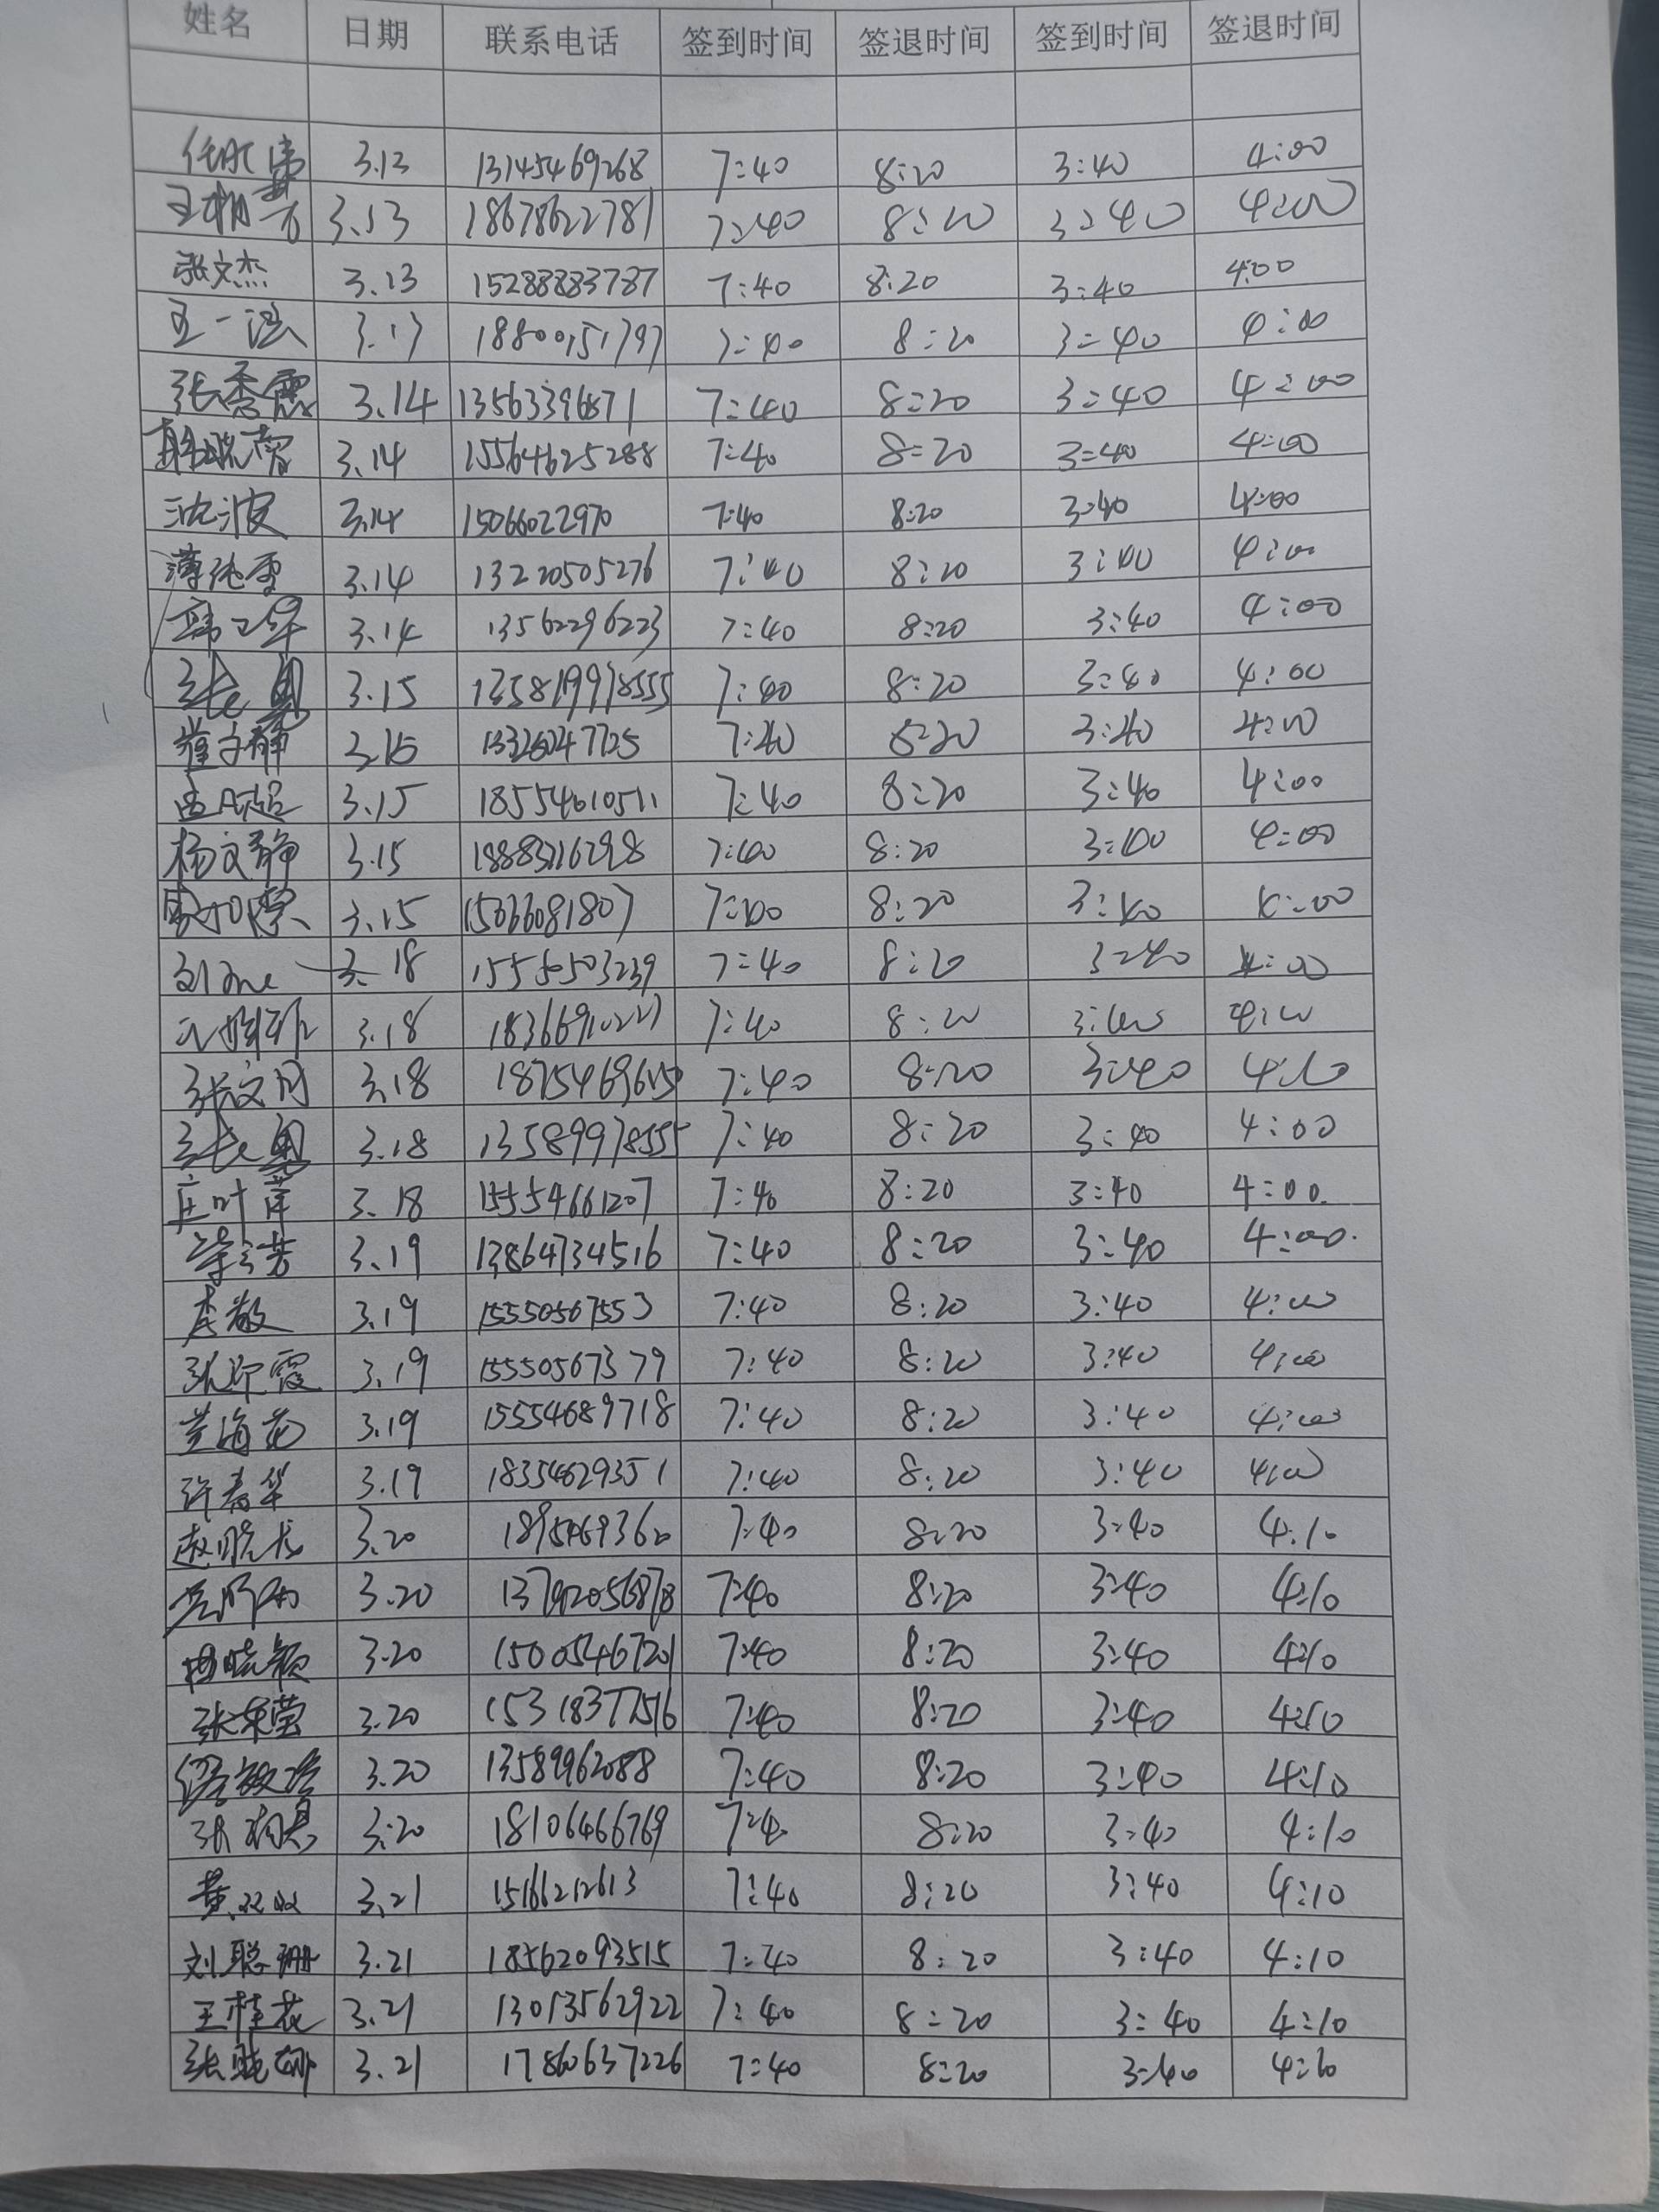 姓名 日期 联系电话 签到时间 签退时间 签到时间 签退时间
3.13 13145469268 7:40 8:20 3:40 4:00
3.13 18678622781 7:40 8:20 3:40 4:00
张文杰 3.13 15288883787 7:40 8:20 3:40 4:00
王一 3.13 18800151797 7:40 8:20 3:40 4:00
张秀霞 3.14 13563396871 7:40 8:20 3:40 4:00
3.14 15564625288 7:40 8:20 3:40 4:00
沈波 3.14 15066022970 7:40 8:20 3:40 4:00
薄纯雪 3.14 13220505276 7:40 8:20 3:40 4:00
3.14 13562296223 7:40 8:20 3:40 4:00
3.15 7:40 8:20 3:40 4:00
崔文静 3.15 13326047725 7:40 8:20 3:40 4:00
3.15 18554610511 7:40 8:20 3:40 4:00
杨文静 3.15 18883216298 7:40 8:20 3:40 4:00
3.15 15066081807 7:40 8:20 3:40 4:00
3.18 15550503239 7:40 8:20 3:40 4:00
3.18 7:40 8:20 3:40 4:00
张文月 3.18 7:40 8:20 3:40
3.18 13589978555 7:40 8:20 3:40 4:00
庄叶萍 3.18 15554661207 7:40 8:20 3:40 4:00.
3.19 13864734516 7:40 8:20 3:40 4:00.
李敏 3.19 15550567553 7:40 8:20 3:40 4:00
3.19 15550567379 7:40 8:20 3:40 4:00
兰海花 3.19 15554689718 7:40 8:20 3:40 4:00
许春华 3.19 18354629351 7:40 8:20 3:40 4:00
赵晓龙 3.20 18954693620 7:40 8:20 3:40 4:10
3.20 7:40 8:20 3:40 4:10
3.20 15005467201 7:40 8:20 3:40 4:10
张荣莹 3.20 15318377516 7:40 8:20 3:40 4:10
3.20 13589962088 7:40 8:20 3:40 4:10
3.20 18106466769 7:40 8:20 3:40 4:10
黄双双 3.21 15166212613 7:40 8:20 3:40 4:10
刘聪珊 3.21 18562093515 7:40 8:20 3:40 4:10
王桂花 3.21 13013562922 7:40 8:20 3:40 4:10
张晓娜 3.21 17860637226 7:40 8:20 3:40 4:10